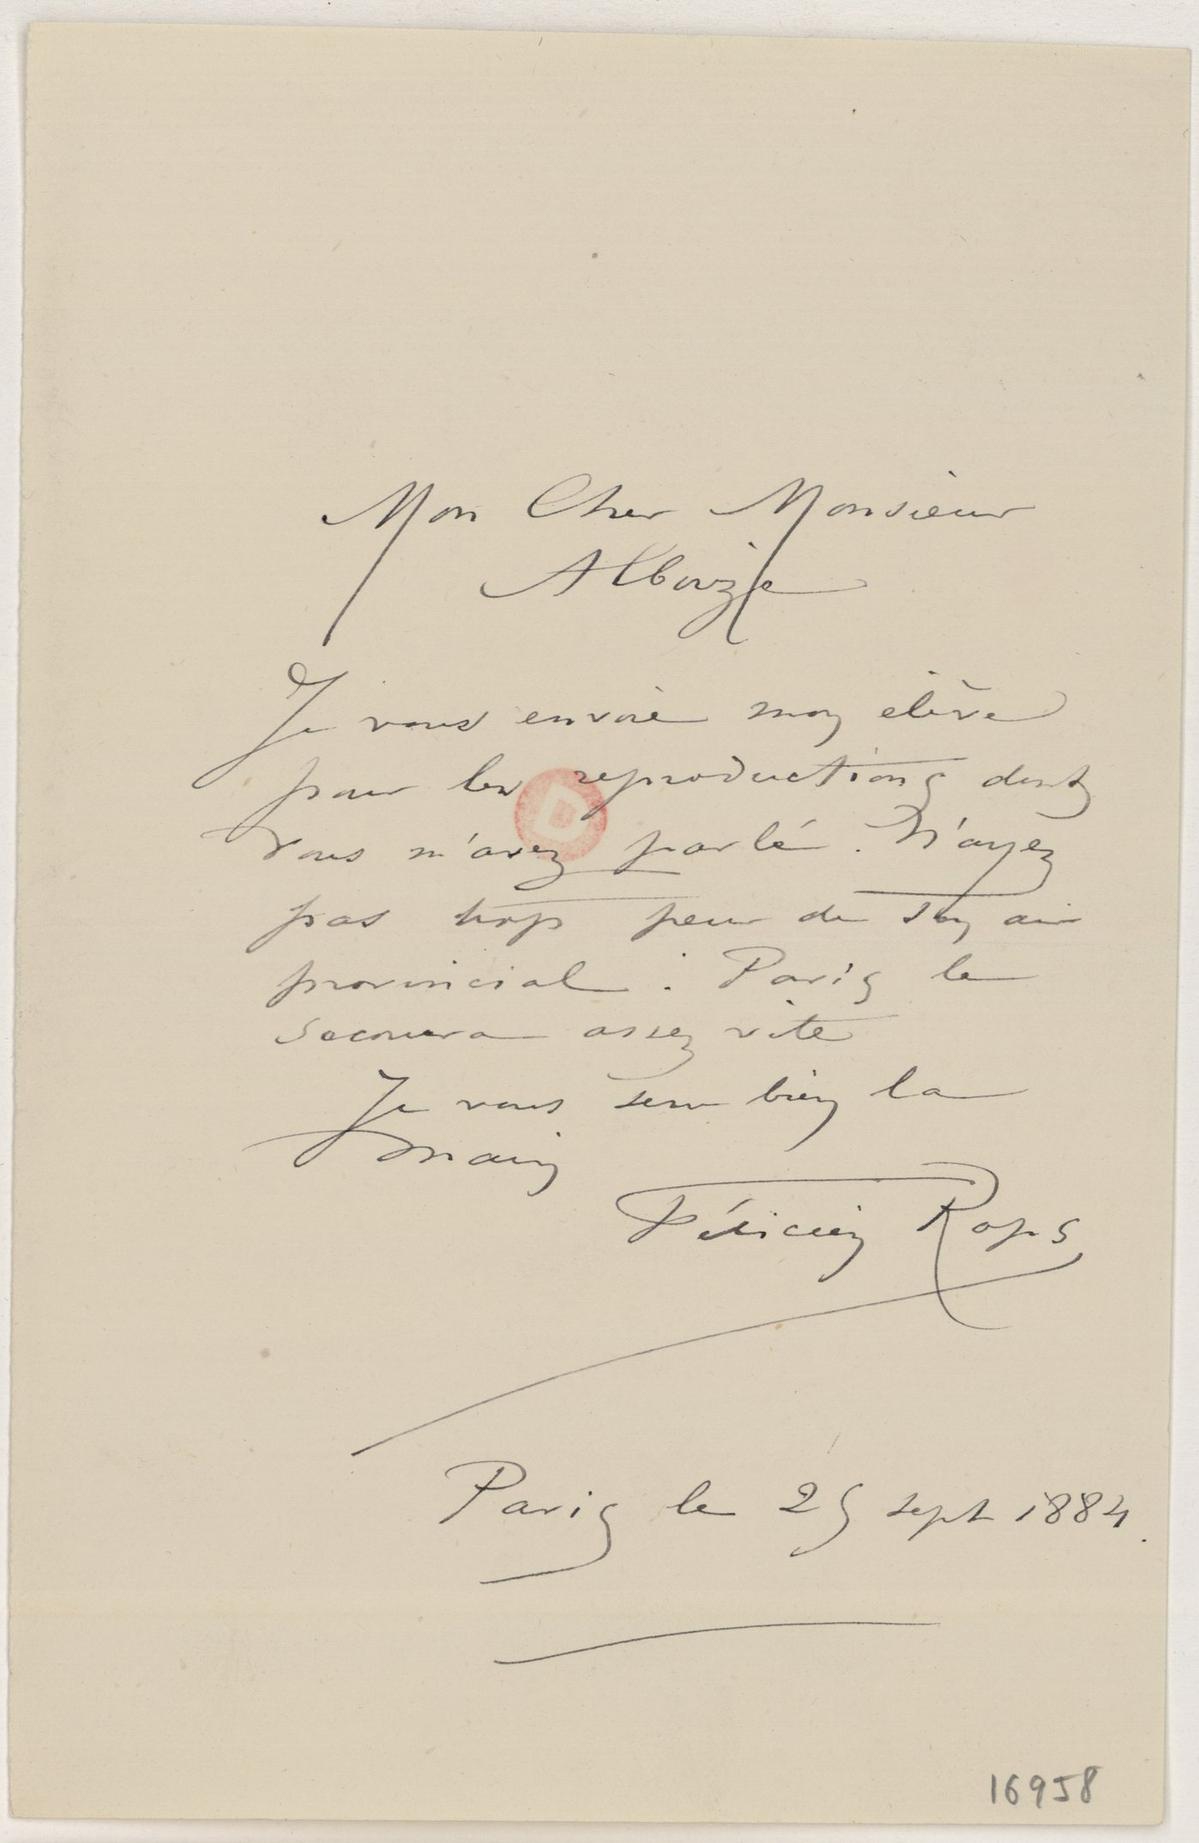 Mon Cher Monsieur
Albouze
Je vous envoie mon élève
pour les reproductions dont
vous m'avez parlé. N'ayez
pas trop peur de son air
provincial : Paris le
secouera assez vite
Je vous serre bien la
main
Félicien Rops
Paris le 25 sept 1884.
D
16958